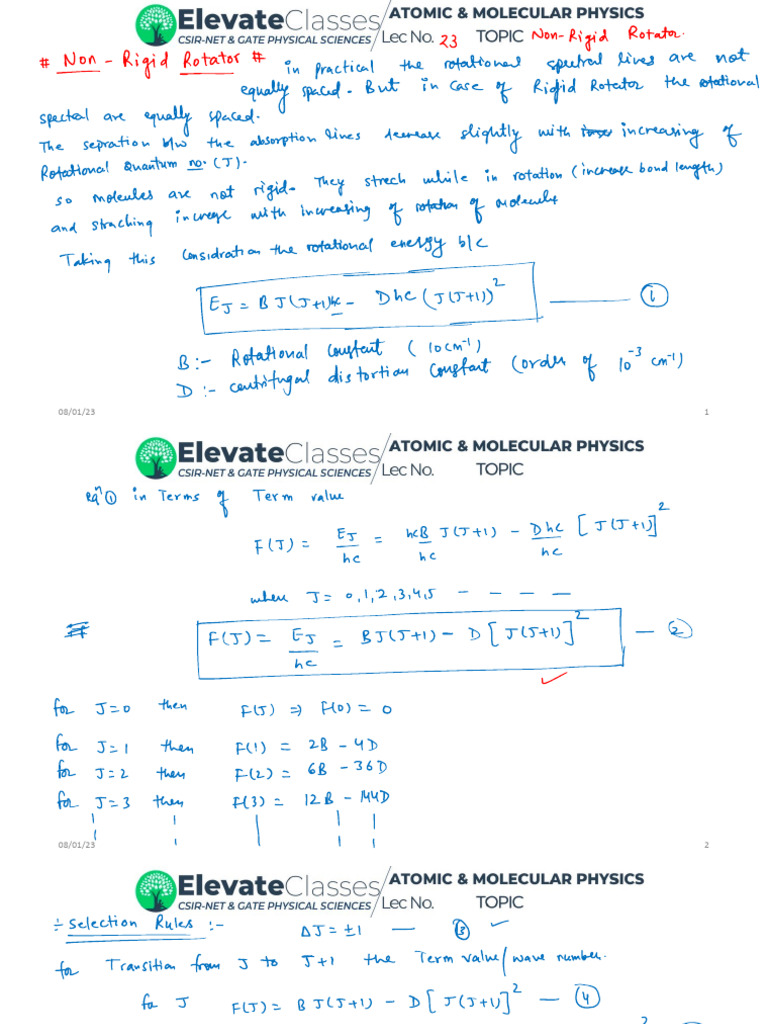 ElevateClasses
CSIR-NET & GATE PHYSICAL SCIENCES
ATOMIC & MOLECULAR PHYSICS
Lec No. 23 TOPIC Non-Rigid Rotator.
# Non - Rigid Rotator # in practical the rotational spectral lines are not
equally spaced. But in case of Rigid Rotator the rotational
spectral are equally spaced.
The sepration b/w the absorption lines decrease slightly with increasing of
Rotational Quantum no. (J).
so molecules are not rigid. They strech while in rotation (increase bond length)
and straching increase with increasing of rotation of molecule
Taking this considration the rotational energy b/c
E_J = B J(J+1)hc - Dhc (J(J+1))² —— ①
B :- Rotational constant ( 10cm⁻¹)
D :- centrifugal distortion constant (order of 10⁻³ cm⁻¹)
08/01/23 1
ElevateClasses
CSIR-NET & GATE PHYSICAL SCIENCES
ATOMIC & MOLECULAR PHYSICS
Lec No. TOPIC
eqⁿ ① in Terms of Term value
F(J) = E_J/hc = hcB/hc J(J+1) - Dhc/hc [J(J+1)]²
where J = 0,1,2,3,4,5 - - - -
F(J) = E_J/hc = BJ(J+1) - D[J(J+1)]² — ②
for J=0 then F(J) ⇒ F(0) = 0
for J=1 then F(1) = 2B - 4D
for J=2 then F(2) = 6B - 36D
for J=3 then F(3) = 12B - 144D
08/01/23 2
ElevateClasses
CSIR-NET & GATE PHYSICAL SCIENCES
ATOMIC & MOLECULAR PHYSICS
Lec No. TOPIC
÷ Selection Rules :- ΔJ = ±1 — ③ ✓
for Transition from J to J+1 the Term value/wave number.
for J F(J) = B J(J+1) - D[J(J+1)]² — ④